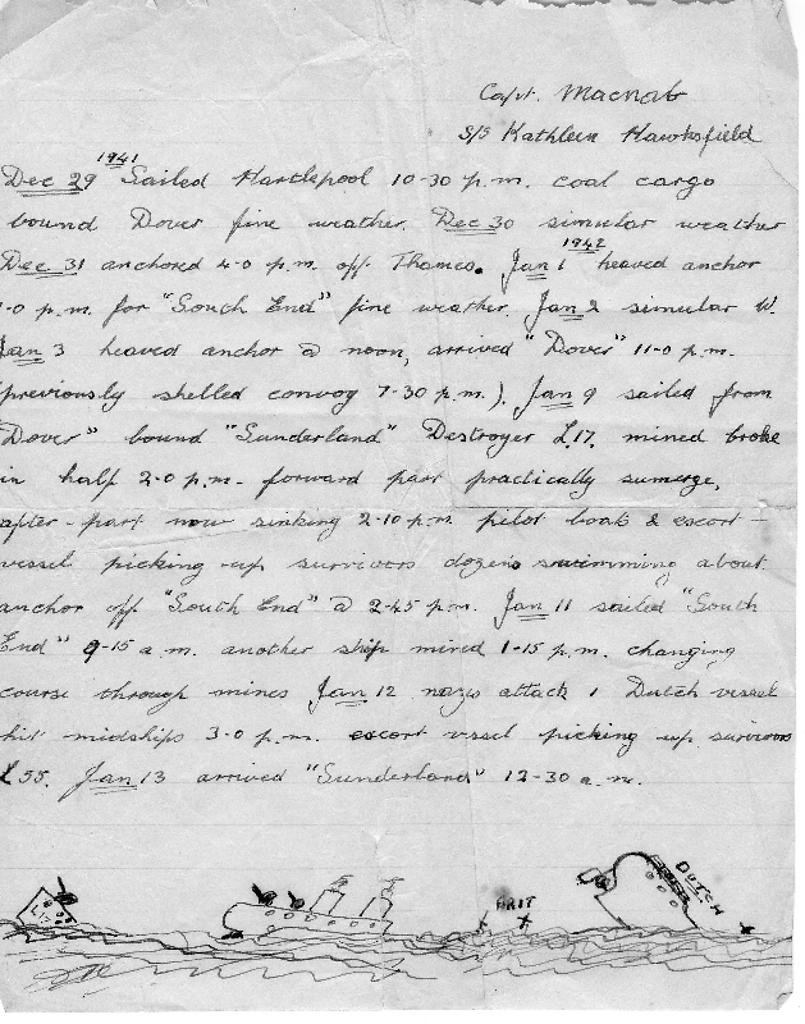 Capt. Macnab
S/S Kathleen Hawksfield
1941
Dec 29 Sailed Hartlepool 10-30 p.m. coal cargo
bound Dover fine weather. Dec 30 simular weather
1942
Dec 31 anchored 4-0 p.m. off Thames. Jan 1 heaved anchor
-0 p.m. for "South End" fine weather. Jan 2 simular W.
Jan 3 heaved anchor @ noon, arrived "Dover" 11-0 p.m.
previously shelled convoy 7-30 p.m.). Jan 9 sailed from
Dover" bound "Sunderland" Destroyer L.17. mined broke
in half 2-0 p.m. forward part practically sumerge,
after-part now sinking 2-10 p.m. pilot boat & escort-
vessel picking-up survivors dozens swimming about.
anchor off "South End" @ 2-45 p.m. Jan 11 sailed "South
End" 9-15 a.m. another ship mined 1-15 p.m. changing
course through mines Jan 12 nazis attack 1 Dutch vessel
hit midships 3-0 p.m. escort vssel picking up survivors
L55. Jan 13 arrived "Sunderland" 12-30 a.m.
L17
BRIT
DUTCH